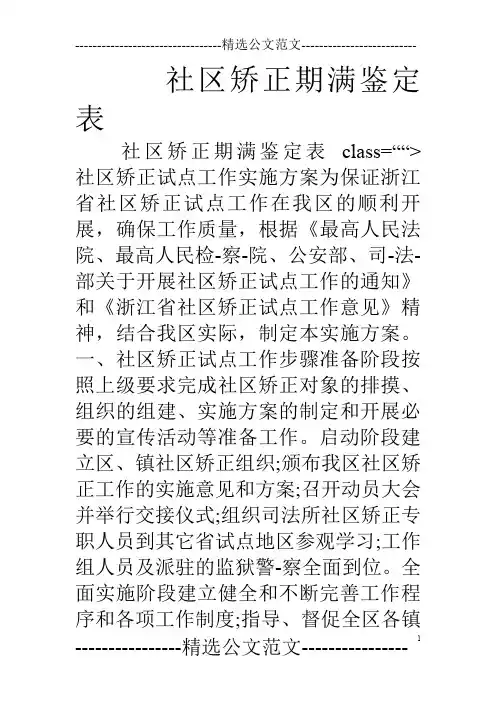 ---------------------------------精选公文范文--------------------------
社区矫正期满鉴定
表
社区矫正期满鉴定表 class=““>
社区矫正试点工作实施方案为保证浙江
省社区矫正试点工作在我区的顺利开
展，确保工作质量，根据《最高人民法
院、最高人民检-察-院、公安部、司-法-
部关于开展社区矫正试点工作的通知》
和《浙江省社区矫正试点工作意见》精
神，结合我区实际，制定本实施方案。
一、社区矫正试点工作步骤准备阶段按
照上级要求完成社区矫正对象的排摸、
组织的组建、实施方案的制定和开展必
要的宣传活动等准备工作。启动阶段建
立区、镇社区矫正组织;颁布我区社区矫
正工作的实施意见和方案;召开动员大会
并举行交接仪式;组织司法所社区矫正专
职人员到其它省试点地区参观学习;工作
组人员及派驻的监狱警-察全面到位。全
面实施阶段建立健全和不断完善工作程
序和各项工作制度;指导、督促全区各镇
1
----------------精选公文范文----------------